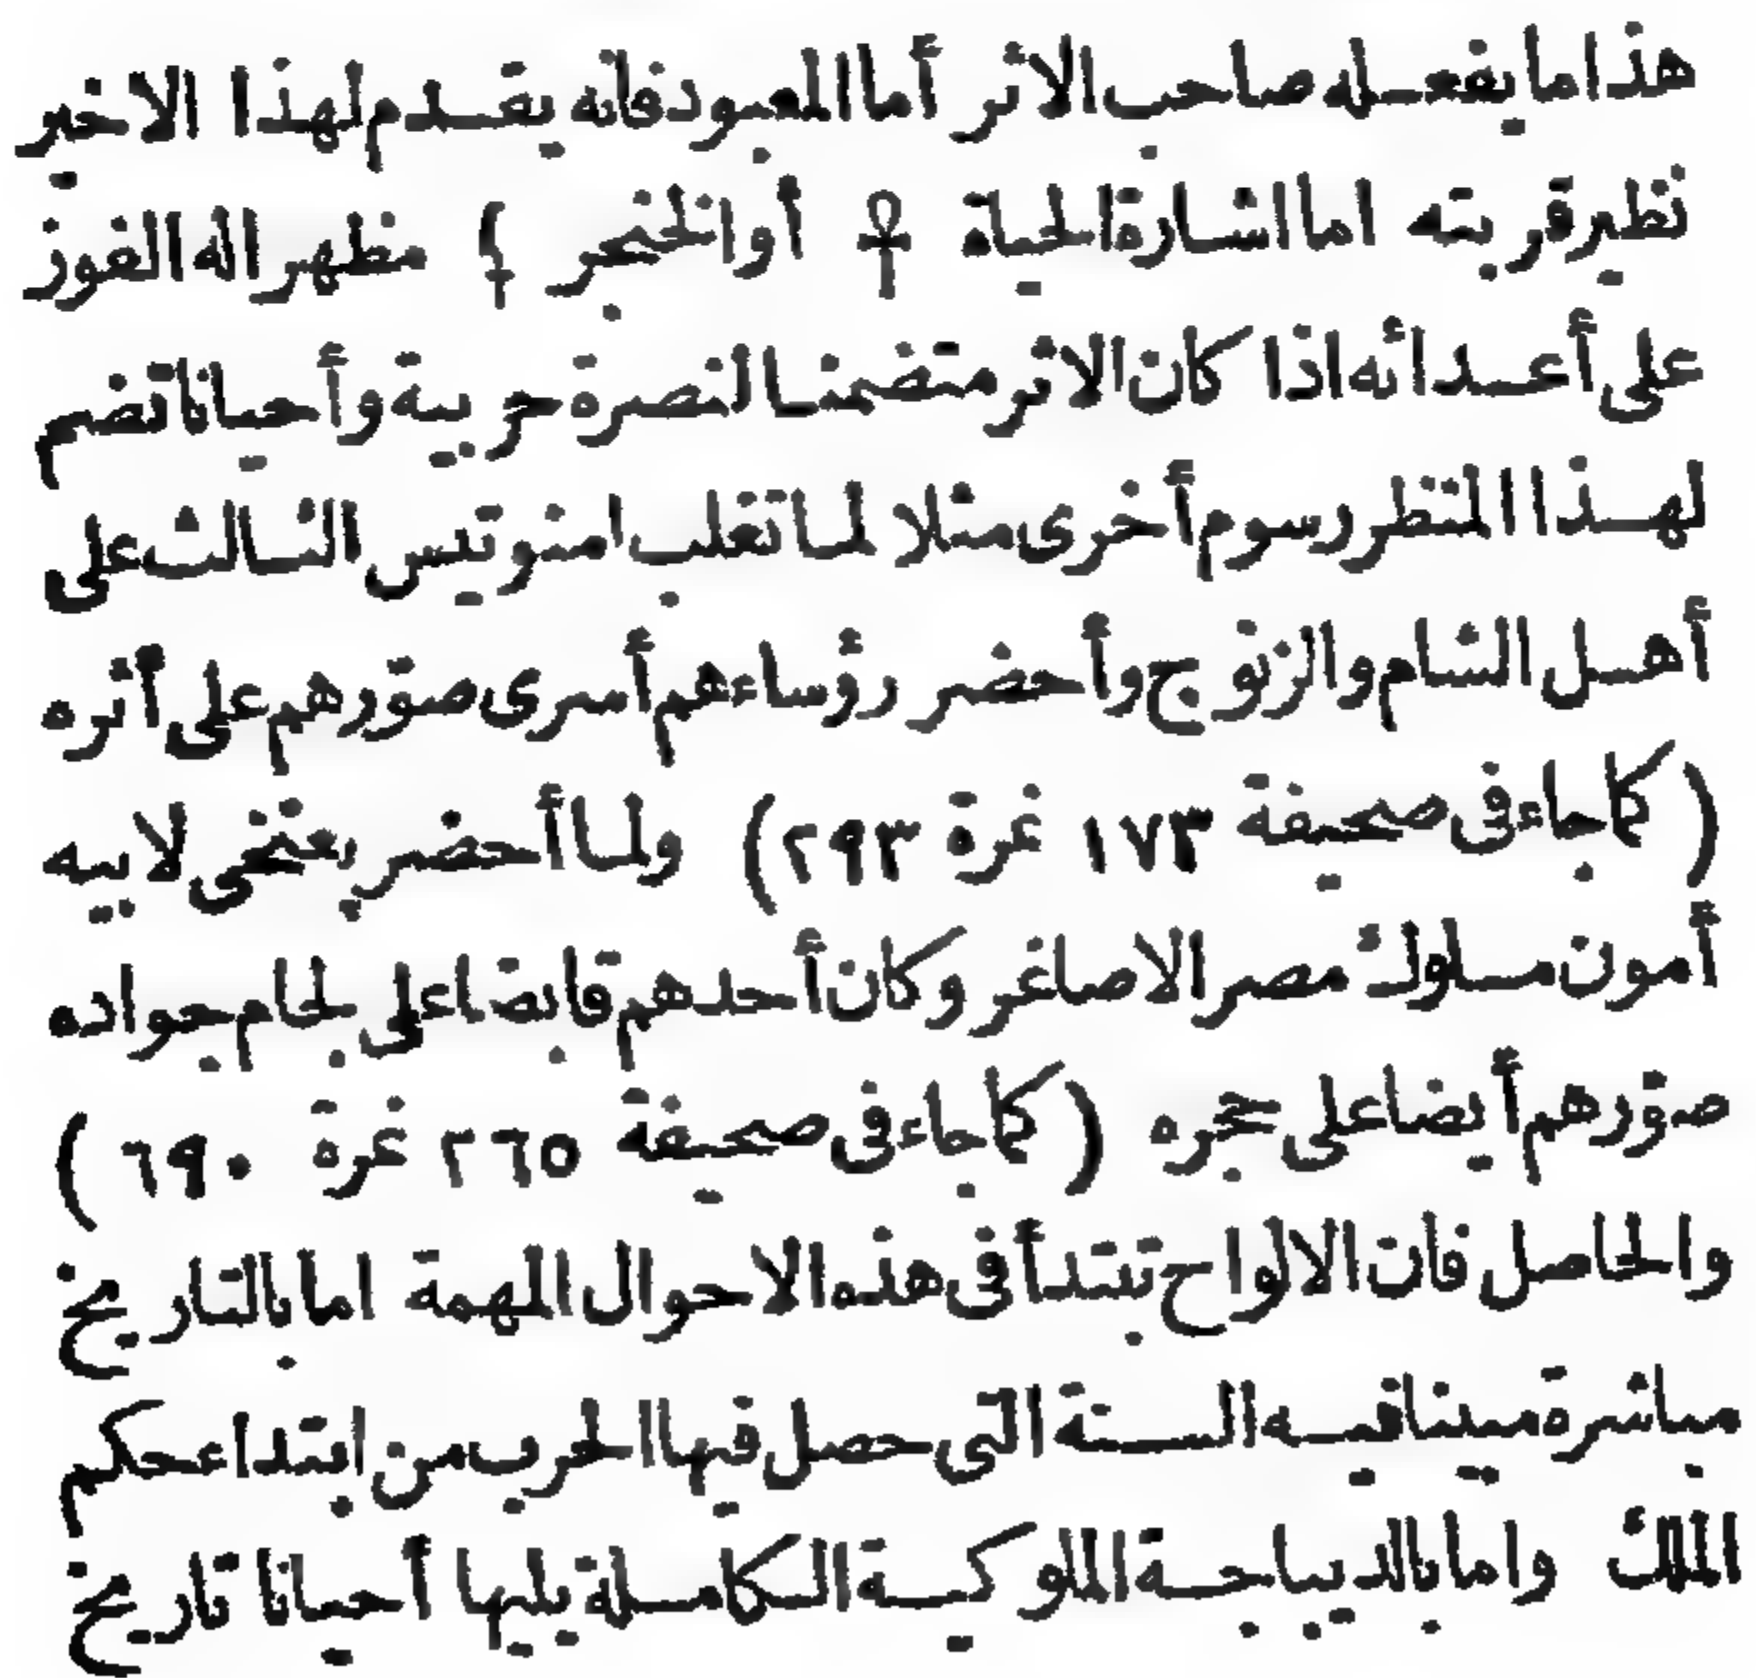 هذا ما يفعله صاحب الاثر أما المعبود فانه يقدم لهذا الاخير
نظير قربته اما اشارة الحياة ☥ أو الخنجر مظهر اله الفوز
على أعدائه اذا كان الاثر متضمنا لنصرة حربية وأحيانا تضم
لهذا المنظر رسوم أخرى مثلا لما تغلب امنوتيس الثالث على
أهل الشام والزنوج وأحضر رؤساءهم أسرى صوّرهم على أثره
(كما جاء فى صحيفة ١٧٣ نمرة ٢٩٣) ولما أحضر پعنخى لابيه
أمون ملوك مصر الاصاغر وكان أحدهم قابضا على لجام جواده
صوّرهم أيضا على حجره (كما جاء فى صحيفة ٢٦٥ نمرة ٦٩٠)
والحاصل فان الالواح تبتدأ فى هذه الاحوال المهمة اما بالتاريخ
مباشرة مبينا فيه السنة التى حصل فيها الحرب من ابتداء حكم
الملك واما بالديباجة الملوكية الكاملة يليها أحيانا تاريخ